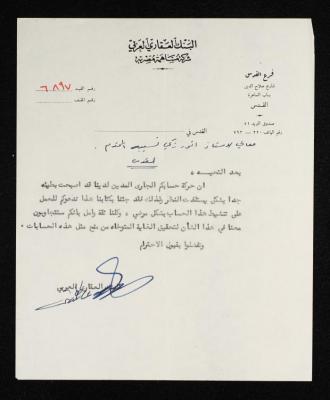 البنك العقاري العربي
شركة مساهمة مصرية
فرع القدس
شارع صلاح الدين
باب الساهرة
القدس
صندوق البريد ٥١
رقم الهاتف ٢٢٠ - ٧٩٣
رقم القيد ٦٨٩٧
رقم الملف
القدس في
معالي الاستاذ انور زكي نسيبة المحترم .
القدس
بعد التحيــه ،
ان حركة حسابكم الجارى المدين لدينا قد اصبحت بطيئه
جدا بشكل يستلفت النظر ولذلك فقد جئنا بكتابنا هذا ندعوكم للعمل
على تنشيط هذا الحساب بشكل مرضي ، وكلنا ثقة وامل بانكم ستتجاوبون
معنا في هذا الشأن لتحقيق الغاية المتوخاه من منح مثل هذه الحسابات ،
وتفضلوا بقبول الاحترام
البنك العقاري العربي